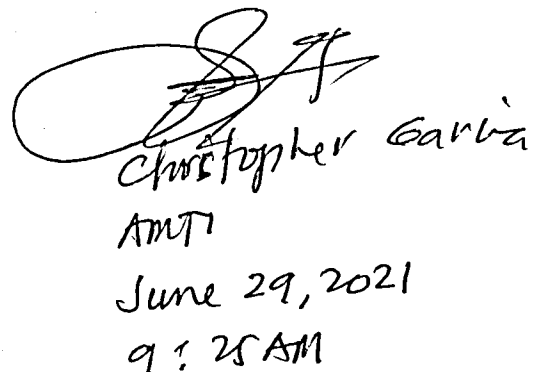 Christopher Garcia
AMTI
June 29, 2021
9:25 AM